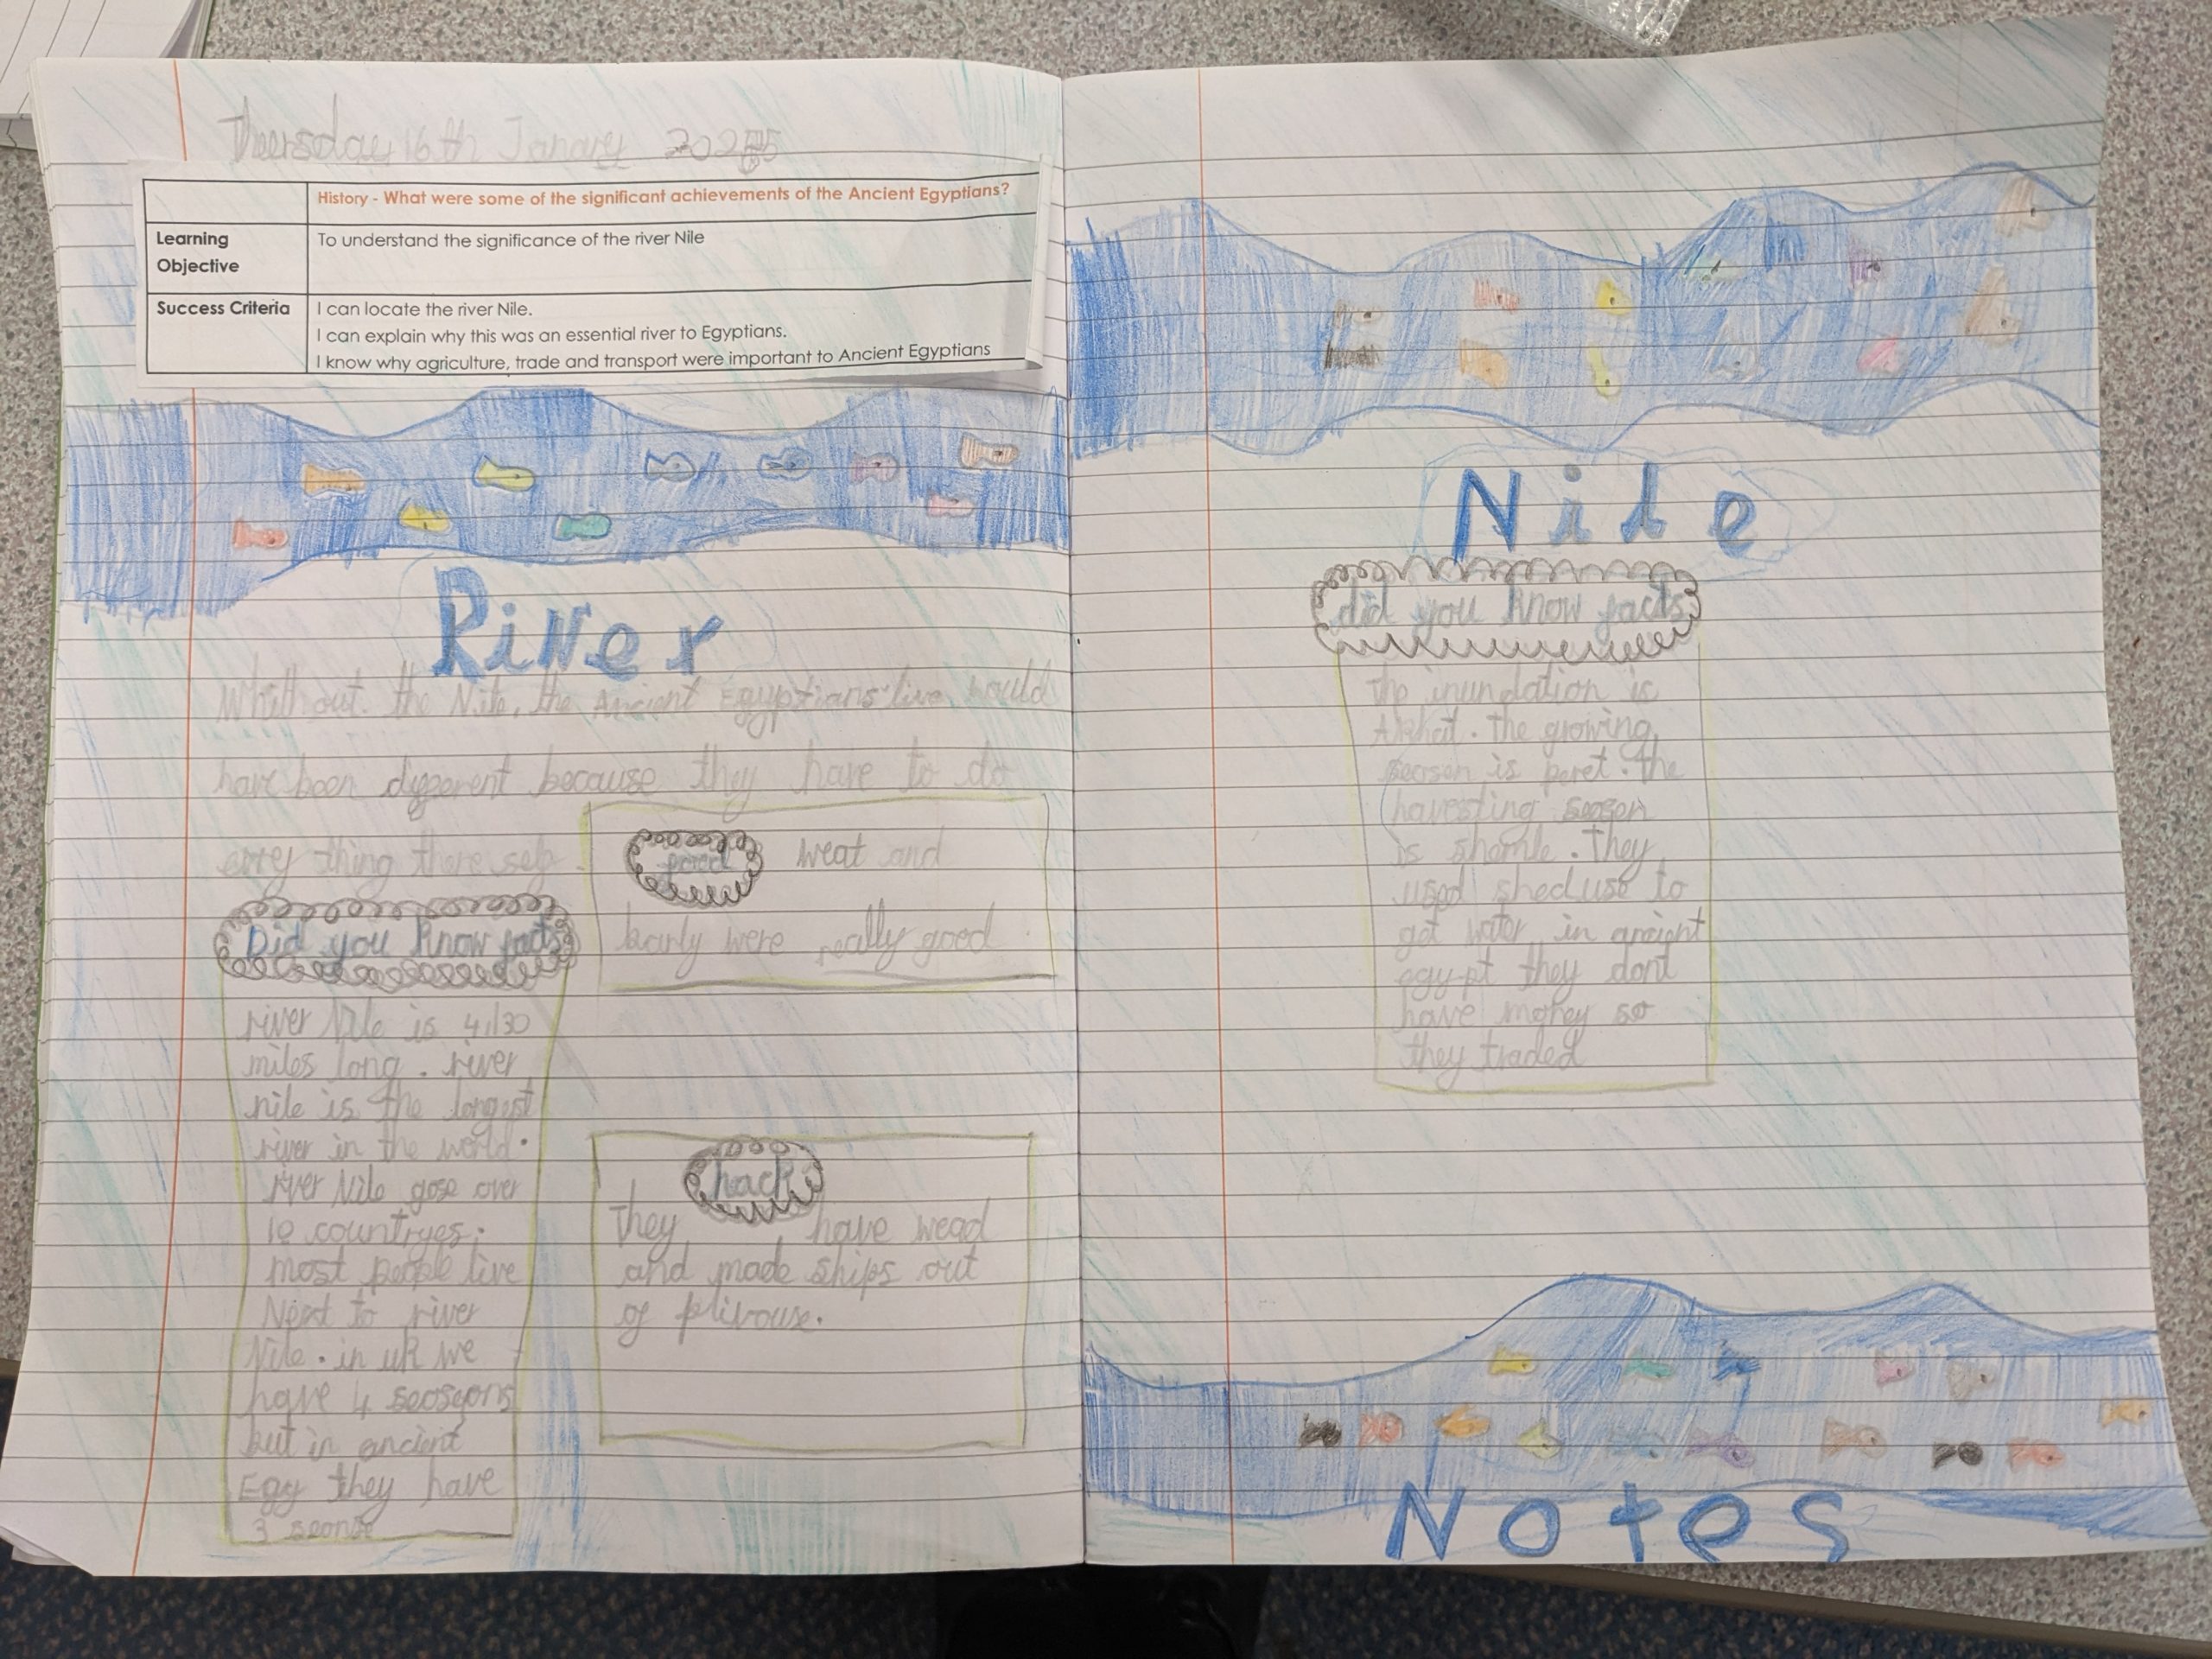 Thuersday 16th Janarey 2025
History - What were some of the significant achievements of the Ancient Egyptians?
Learning Objective
To understand the significance of the river Nile
Success Criteria
I can locate the river Nile.
I can explain why this was an essential river to Egyptians.
I know why agriculture, trade and transport were important to Ancient Egyptians
River
Whithout the Nile, the Ancient Egyptians live would
have been different because they have to do
thing there self.
weat and
barly were really good
Did you know facts
river Nile is 4,130
miles long. river
nile is the longest
river in the world.
river Nile gose over
10 countryes.
most people live
Next to river
Nile. in uk we
have 4 seoseons
but in ancient
Egy they have
3
hack
They have wead
and made ships out
of
Nile
did you know facts
the inundation is
the growing
season is peret. the
havesting season
is They
used to
get water in ancient
egypt they dont
have money so
they traded
Notes